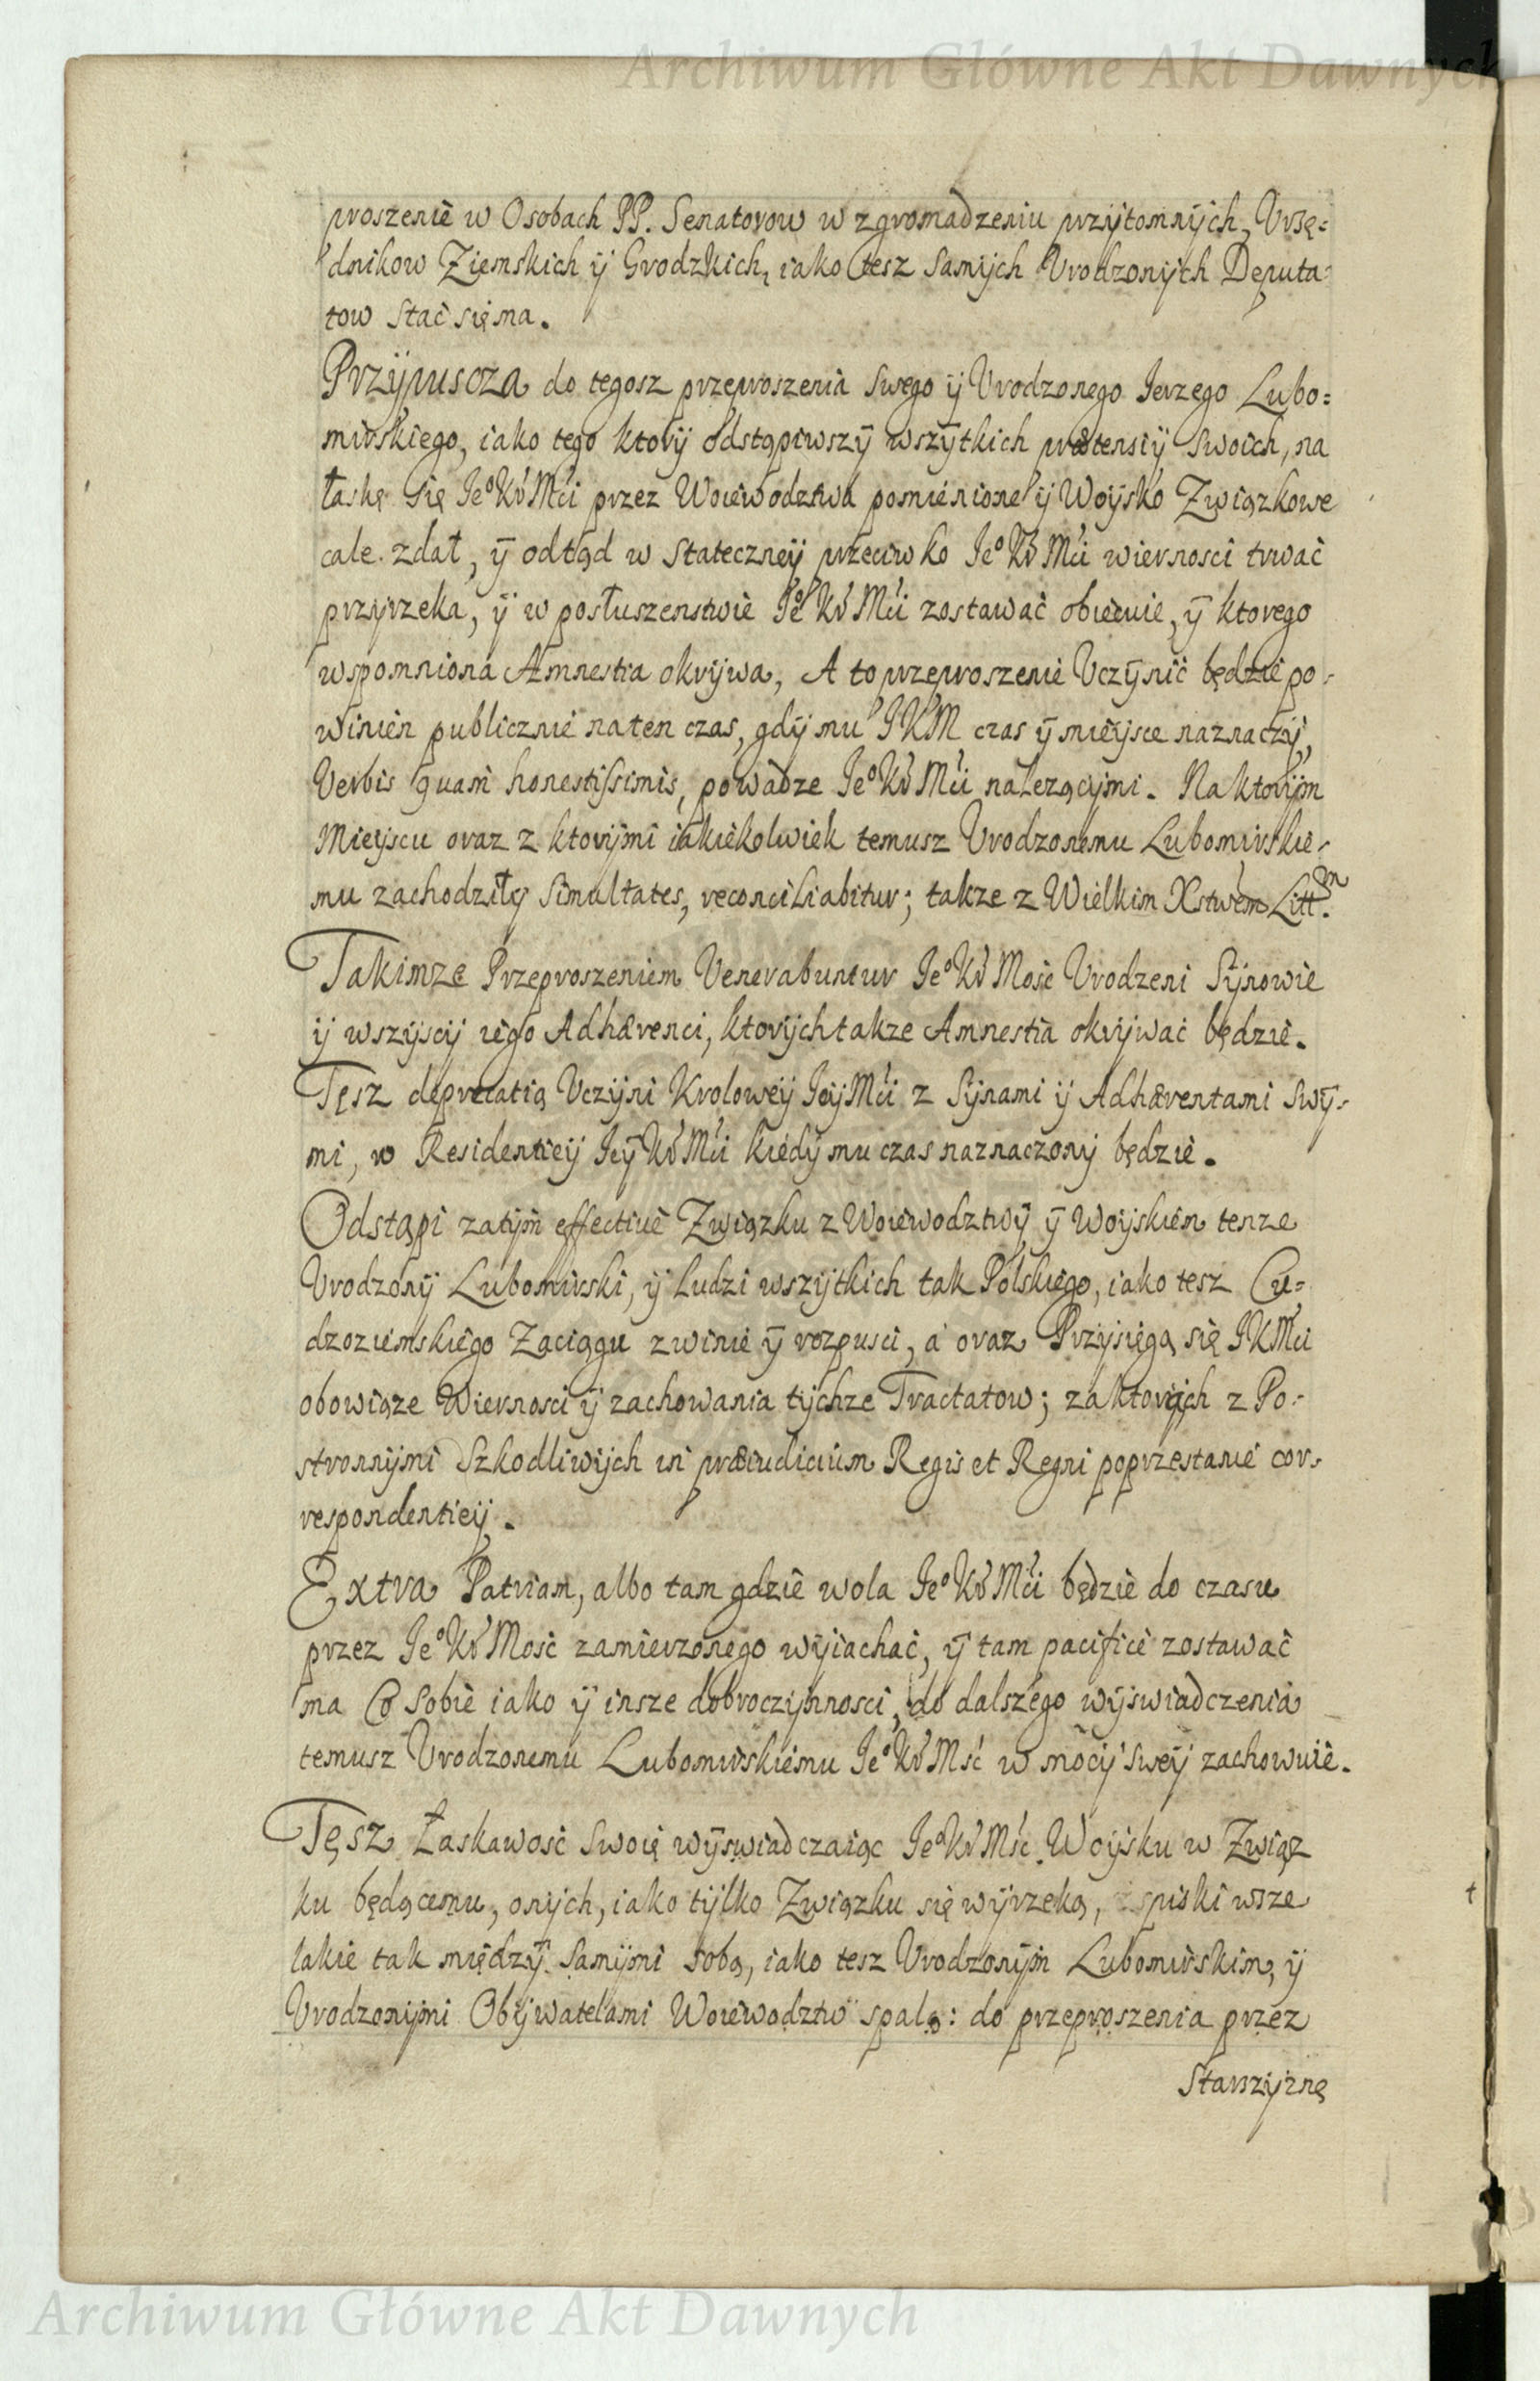 Archiwum Główne Akt Dawnych
proszenie w Osobach PP. Senatorow w zgromadzeniu przytomnych, Vrzę=
dnikow Ziemskich ÿ Grodzkich, iako tesz samÿch Vrodzonÿch Deputa=
tow stać się ma.
Przÿpuscza do tegosz przeproszenia swego ÿ Vrodzonego Jerzego Lubo=
mirskiego, iako tego ktorÿ odstąpiwszÿ wszÿtkich prætensiÿ swoich, na
łaskę się Jeº Kr Mći przez Woiewodztwa pomienione ÿ Woÿsko Związkowe
cale zdał, ÿ odtąd w stateczneÿ przeciwko Jeº Kr Mći wiernosci trwać
przyrzeka, ÿ w posłuszenstwie Jeº Kr Mći zostawać obiecuie, ÿ ktorego
wspomniona Amnestia okrÿwa, A to przeproszenie Vczÿnić będzie po-
winien publicznie na ten czas, gdÿ mu JKM czas ÿ mieÿsce naznaczÿ,
Verbis quam honestissimis, powadze Jeº Kr Mći nalezącÿmi. Na ktorÿm
Mieÿscu oraz z ktorÿmi iakiekolwiek temusz Vrodzonemu Lubomirskie-
mu zachodziłÿ simultates, reconciliabitur; takze z Wielkim Xstwem Litt.m
Takimze Przeproszeniem Venerabuntur Jeº Kr Mość Vrodzeni Sÿnowie
ÿ wszÿscÿ iego Adhærenci, ktorÿch takze Amnestia okrÿwać będzie.
Tęsz deprecatią Vczÿni Kroloweÿ JeÿMći z Sÿnami ÿ Adhærentami swÿ-
mi, w Residentieÿ Jeÿ Kr Mći kiedÿ mu czas naznaczonÿ będzie.
Odstąpi zatÿm effectiue Związku z Woiewodztwÿ ÿ Woÿskiem tenze
Vrodzonÿ Lubomirski, ÿ ludzi wszÿtkich tak Polskiego, iako tesz Cu=
dzoziemskiego Zaciągu zwinie ÿ rozpusci, a oraz Przÿsięgą się JKMći
obowiąze Wiernosci ÿ zachowania tÿchze Tractatow; za ktorÿch z Po-
stronnÿmi Szkodliwÿch in præiudicium Regis et Regni poprzestanie cor-
respondentieÿ.
Extra Patriam, albo tam gdzie wola Jeº Kr Mći będzie do czasu
przez Jeº Kr Mość zamierzonego wÿiachać, ÿ tam pacifice zostawać
ma Co sobie iako ÿ insze dobroczÿnnosci, do dalszego wÿswiadczenia
temusz Vrodzonemu Lubomirskiemu Jeº Kr Mść w mocÿ sweÿ zachowuie.
Tęsz Łaskawość swoię wÿswiadczaiąc Jeº Kr Mść Woÿsku w Związ
ku będącemu, onÿch, iako tÿlko Związku się wÿrzeką, spiski wsze
lakie tak międzÿ samÿmi sobą, iako tesz Vrodzonÿm Lubomirskim, ÿ
Vrodzonÿmi Obÿwatelami Woiewodztw spalą: do przeproszenia przez
Starszÿznę
Archiwum Główne Akt Dawnych